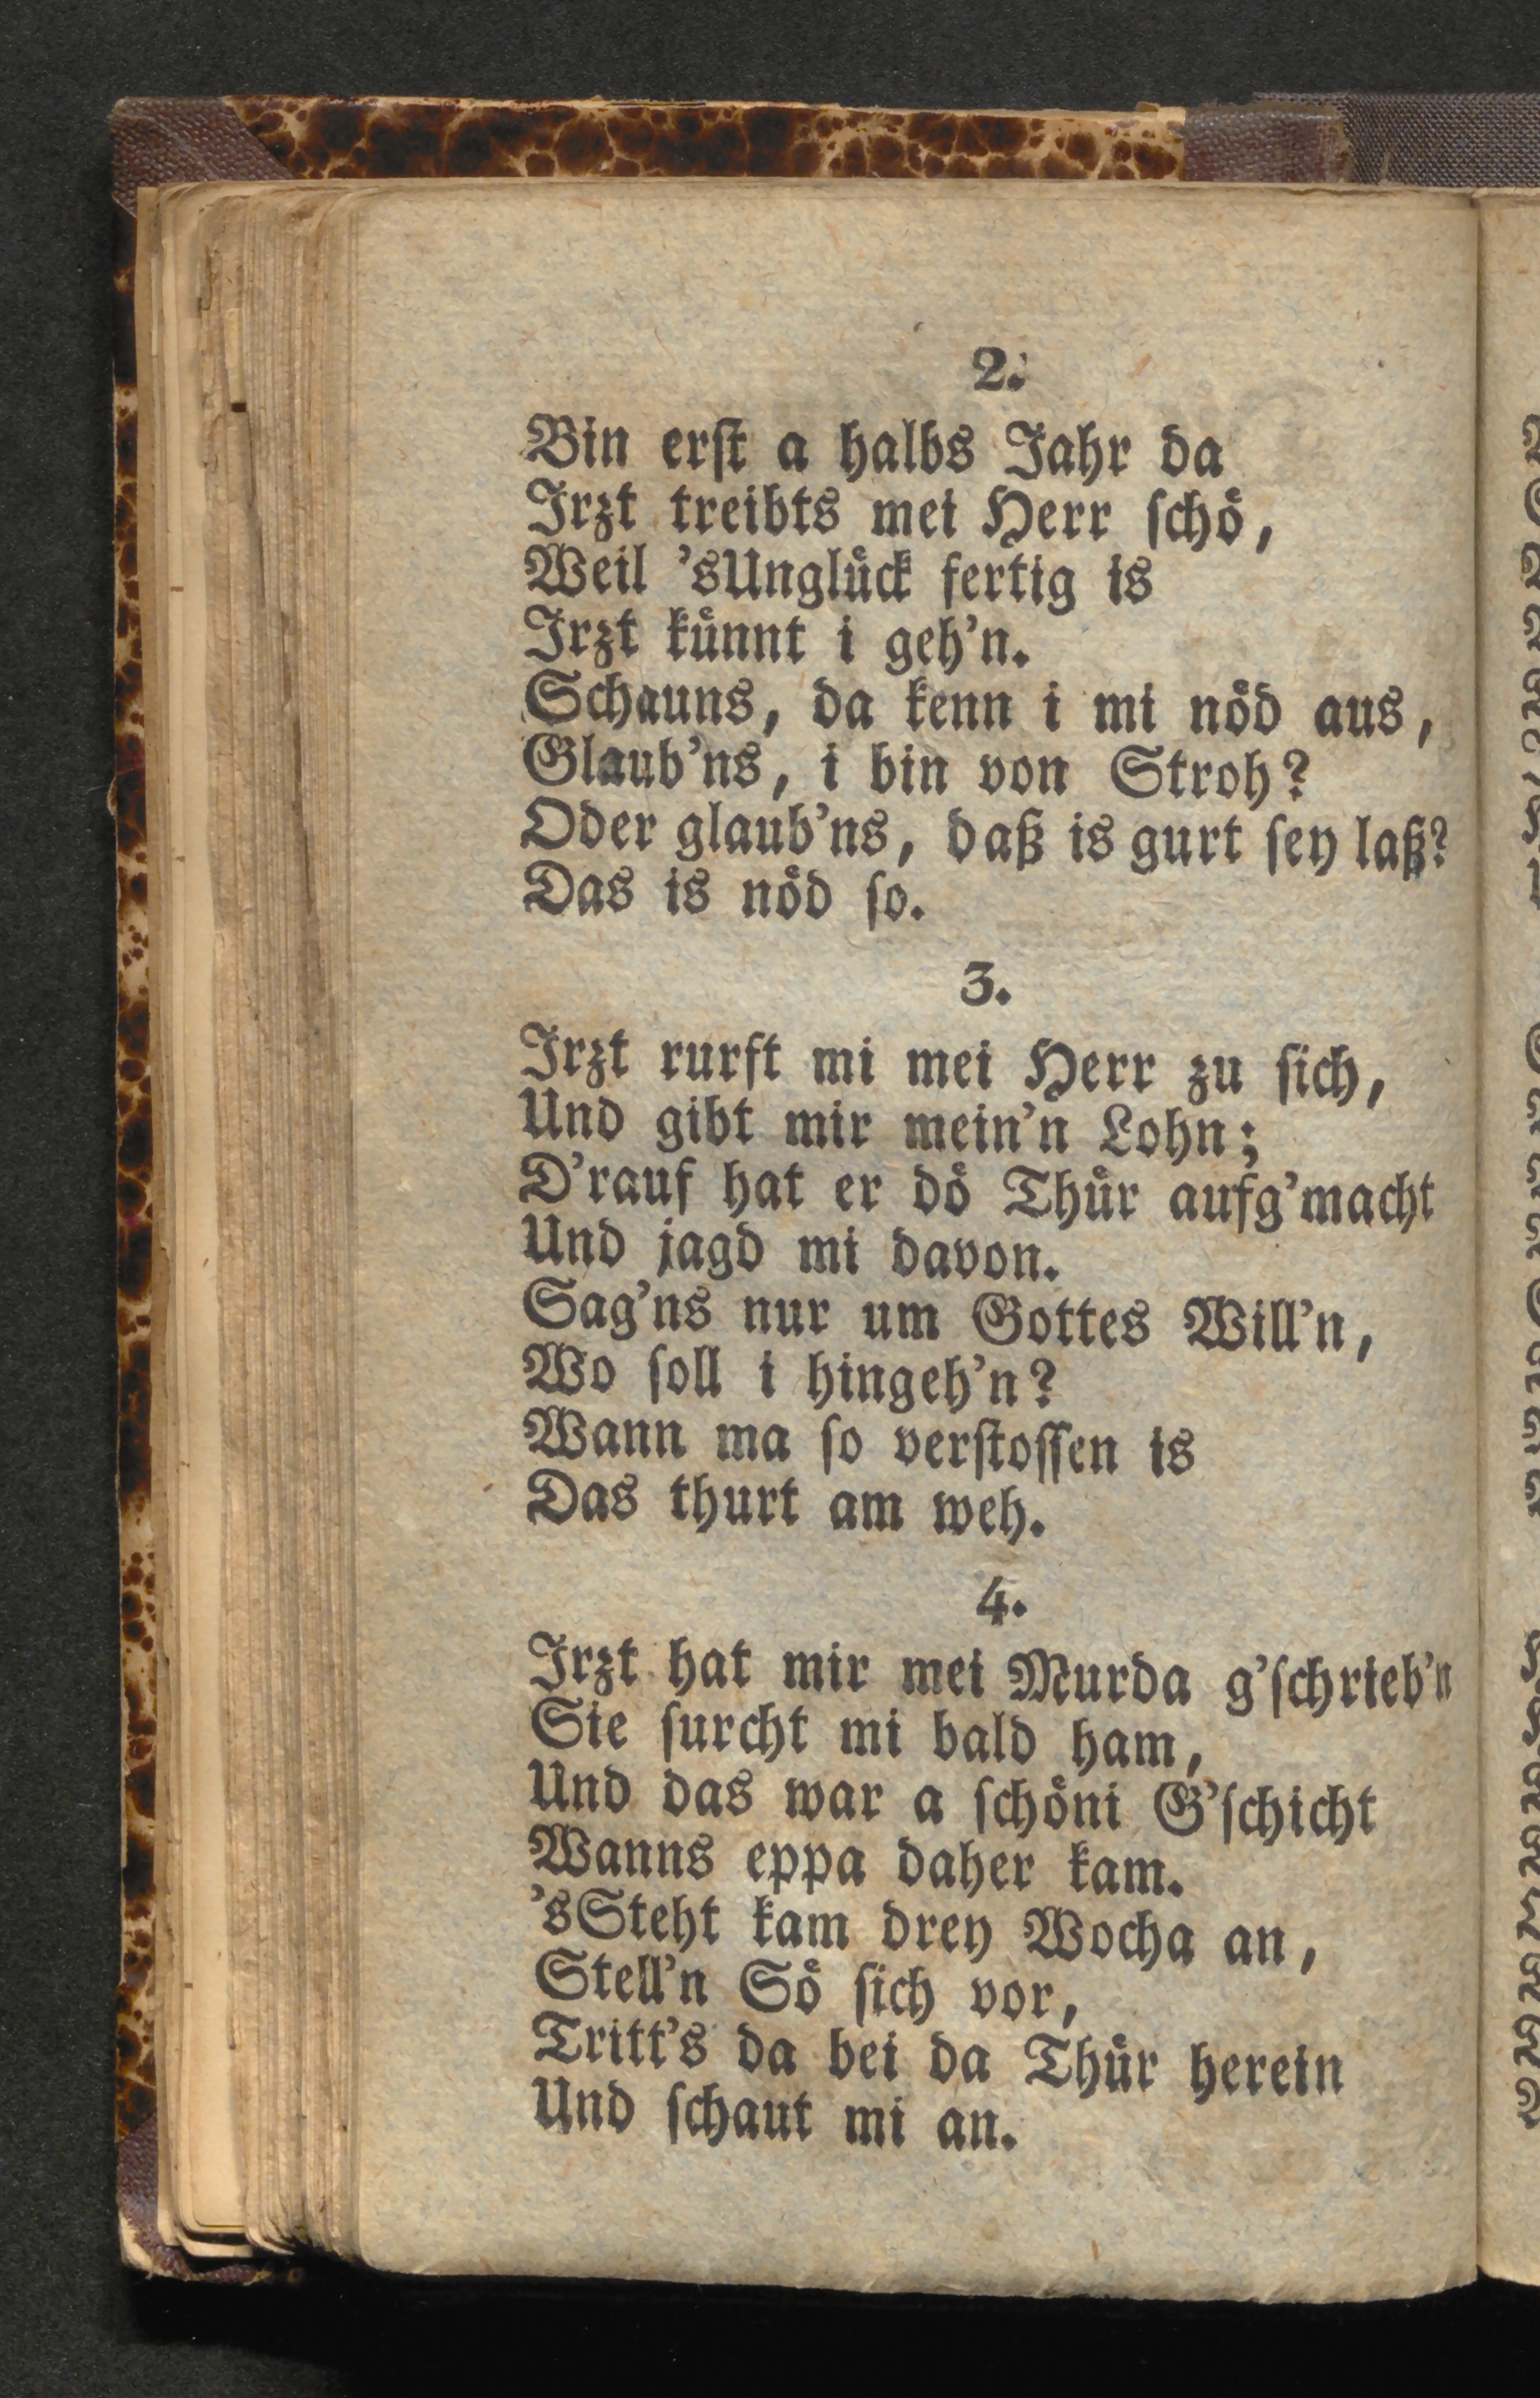 2.
Bin erſt a halbs Jahr da
Irzt treibts mei Herr ſchö,
Weil 'sUnglück fertig is
Irzt künnt i geh'n.
Schauns, da kenn i mi nöd aus,
Glaub'ns, i bin von Stroh?
Oder glaub'ns, daß is gurt ſey laß?
Das is nöd ſo.
3.
Irzt rurft mi mei Herr zu ſich,
Und gibt mir mein'n Lohn;
D'rauf hat er dö Thür aufg'macht
Und jagd mi davon.
Sag'ns nur um Gottes Will'n,
Wo ſoll i hingeh'n?
Wann ma ſo verſtoſſen is
Das thurt am weh.
4.
Irzt hat mir mei Murda g'ſchrieb'n
Sie ſurcht mi bald ham,
Und das war a ſchöni G'ſchicht
Wanns eppa daher kam.
'sSteht kam drey Wocha an,
Stell'n Sö ſich vor,
Tritt's da bei da Thür herein
Und ſchaut mi an.